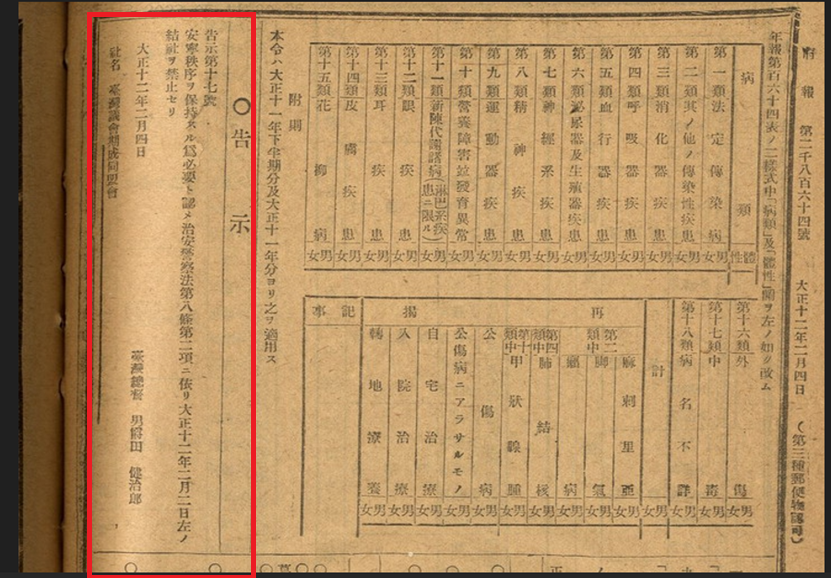 府報 第二千八百六十四號 大正十二年二月四日 (第三種郵便物認可)
年報第百六十四表ノ二樣式中「病類」及「體性」欄ヲ左ノ如ク改ム
病類 體性
第一類法定傳染病 女男
第二類其ノ他ノ傳染性疾患 女男
第三類消化器疾患 女男
第四類呼吸器疾患 女男
第五類血行器疾患 女男
第六類泌尿器及生殖器疾患 女男
第七類神經系疾患 女男
第八類精神疾患 女男
第九類運動器疾患 女男
第十類營養障害竝發育異常 女男
第十一類新陳代謝諸病(淋巴系疾患ニ限ル) 女男
第十二類眼疾患 女男
第十三類耳疾患 女男
第十四類皮膚疾患 女男
第十五類花柳病 女男
第十六類外傷 女男
第十七類中毒 女男
第十八類病名不詳 女男
計 女男
再揭
第二類中
麻剌里亞 女男
脚氣 女男
癩病 女男
第四類中 肺結核 女男
第十類中 甲狀腺腫 女男
公傷病 女男
公傷病ニアラサルモノ 女男
自宅治療 女男
入院治療 女男
轉地療養 女男
記事
附則
本令ハ大正十一年下半期分及大正十一年分ヨリ之ヲ適用ス
〇告示
告示第十七號
安寧秩序ヲ保持スル爲必要ト認メ治安警察法第八條第二項ニ依リ大正十二年二月二日左ノ
結社ヲ禁止セリ
大正十二年二月四日
臺灣總督 男爵田 健治郎
社名 臺灣議會期成同盟會